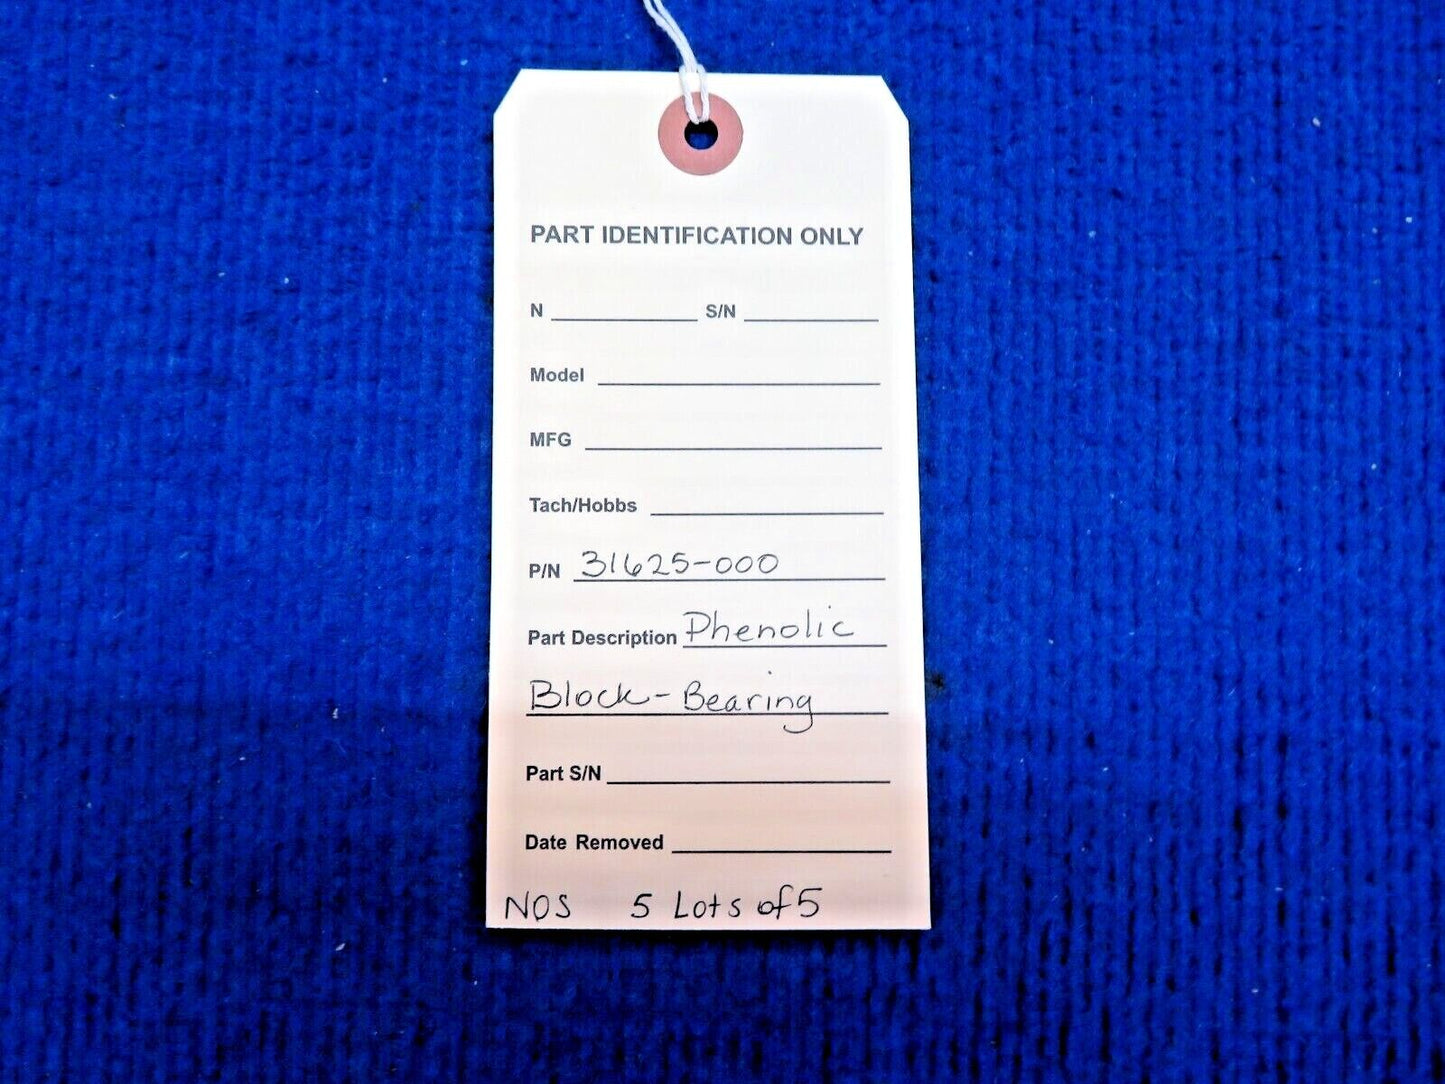 PART IDENTIFICATION ONLY
N S/N
Model
MFG
Tach/Hobbs
P/N 31625-000
Part Description Phenolic
Block-Bearing
Part S/N
Date Removed
NOS 5 Lots of 5